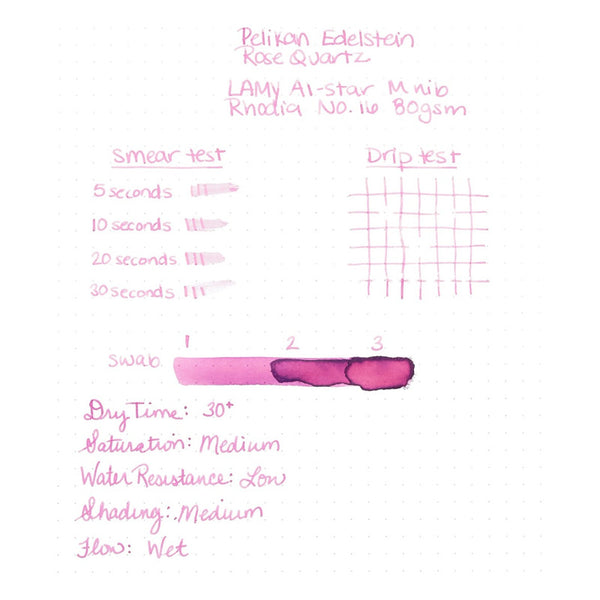 Pelikan Edelstein
Rose Quartz
LAMY Al-star M nib
Rhodia No. 16 80gsm
Smear test
Drip test
5 seconds
10 seconds
20 seconds
30 seconds
1 2 3
swab
Dry Time: 30+
Saturation: Medium
Water Resistance: Low
Shading: Medium
Flow: Wet